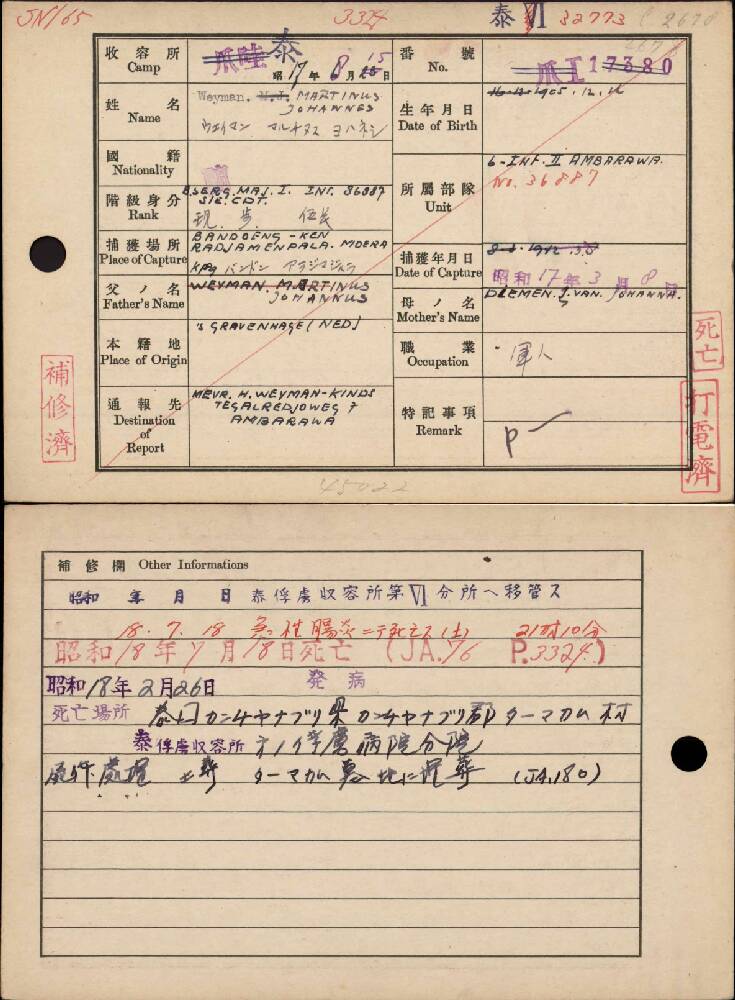 JN165
3324
泰 VI 32773
C 2678
收容所 Camp
爪陸 泰
昭 17 年 8 月 15 日
番號 No.
爪I 17380
姓名 Name
Weyman. M.J. MARTINUS
JOHANNES
ウエイマン マルチヌス ヨハネシ
生年月日 Date of Birth
1905.12.12
國籍 Nationality
階級身分 Rank
B.SERG.MAJ.I. INF. 36887
SIE.CDT.
現. 歩. 伍長
所屬部隊 Unit
6-INF. II AMBARAWA.
No. 36887
捕獲場所 Place of Capture
BANDOENG - KEN
RADJAMENDALA. MOERA
バンドン
捕獲年月日 Date of Capture
昭和 17 年 3 月 8 日
父ノ名 Father's Name
WEYMAN. MARTINUS
JOHANNUS
母ノ名 Mother's Name
DLEMEN. J. VAN. JOHANNA.
本籍地 Place of Origin
's GRAVENHAGE (NED)
職業 Occupation
軍人
通報先 Destination of Report
MEVR. H. WEYMAN-KINDS
TEGALREDJOWEG 7
AMBARAWA
特記事項 Remark
P
補修濟
死亡
打電濟
45022
補修欄 Other Informations
昭和 年 月 日 泰俘虜収容所第VI分所ヘ移管ス
18.7.18 急性腸炎ニテ死亡ス(土) 21時10分
昭和18年7月18日死亡 (JA.76 P.3324)
昭和18年2月26日 発病
死亡場所 泰国カンチヤナブリ県カンチヤナブリ郡ターマカム村
泰俘虜収容所 俘虜病院分院
土葬 ターマカム墓地に埋葬 (JA.180)